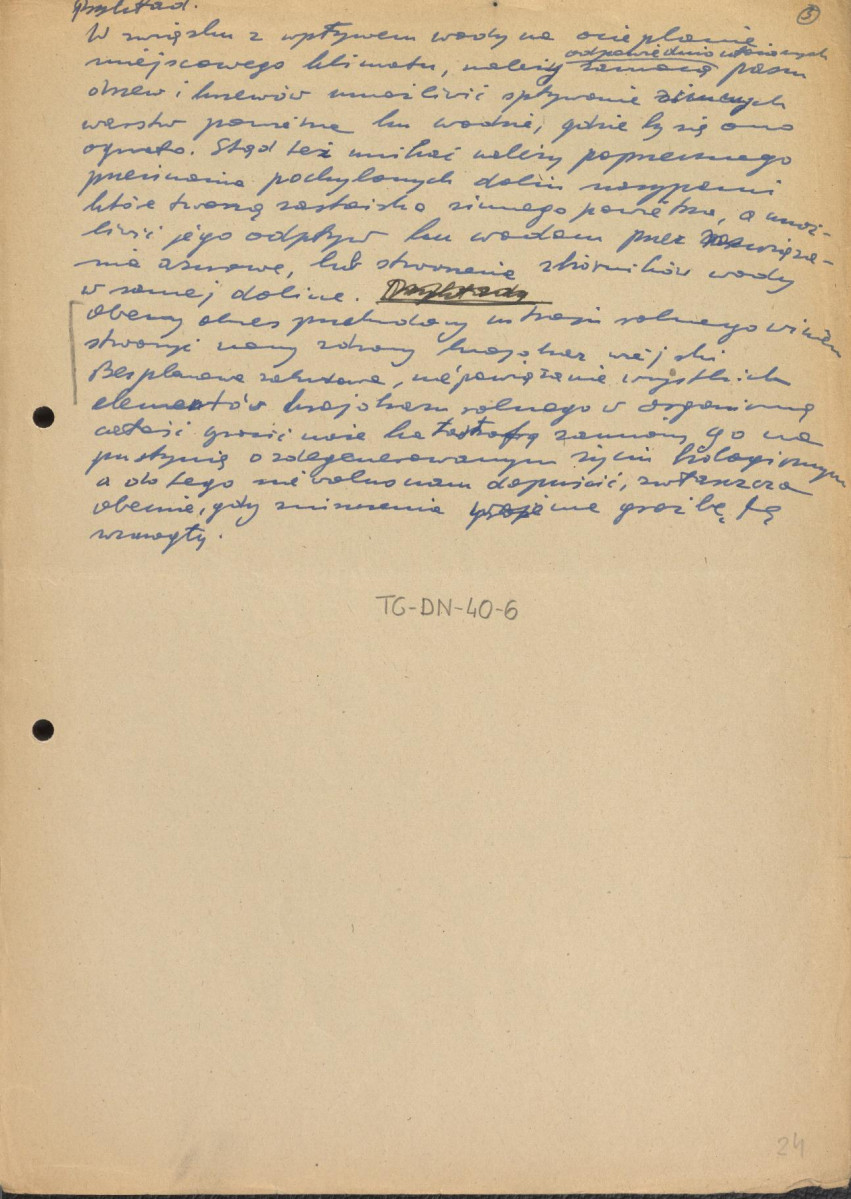 Przykład.
5
W związku z wpływem wody na ocieplanie
odpowiednio
miejscowego klimatu, należy pasm
drzew i krzewów umożliwić spływanie zimnych
warstw powietrza ku wodzie, gdzie by się ono
ogrzało. Stąd też unikać należy poprzecznego
przecinania pochyłonych dolin nasypami
które tworzą zastoiska zimnego powietrza, a umoż-
liwić jego odpływ ku wodom przez rozwiąza-
nia ażurowe, lub stworzenie zbiorników wody
w samej dolinie. Przykłady
Obecny okres przebudowy ustroju rolnego winien
stworzyć nowy zdrowy krajobraz wiejski
Bezplanowa zabudowa, niepowiązanie wszystkich
elementów krajobrazu rolnego w organiczną
całość grozić może katastrofą zamiany go na
pustynię o zdegenerowanym życiu biologicznym
a do tego nie wolno nam dopuścić, zwłaszcza
obecnie, gdy zniszczenia wojenne groźbę tę
wzmogły.
TG-DN-40-6
24